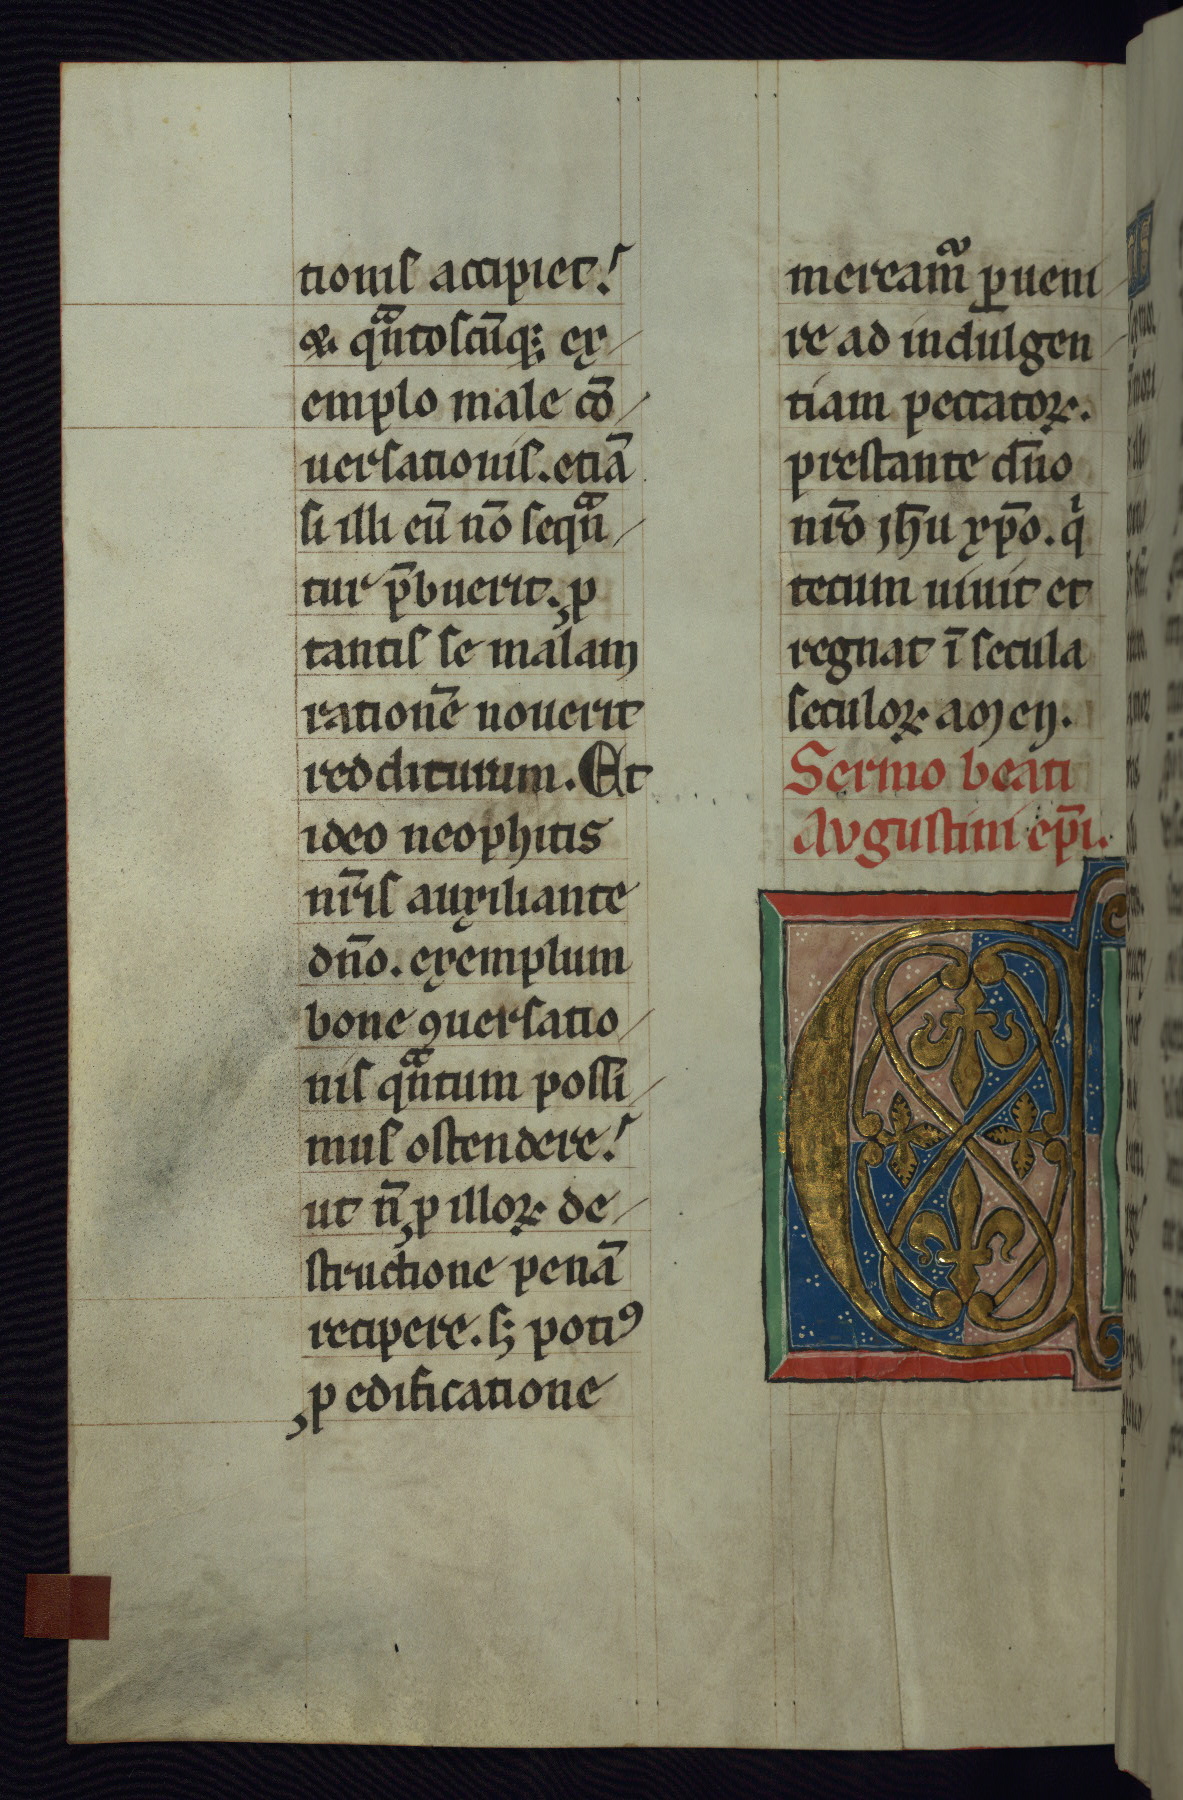 tionis accipiet.
& qᷓntoscūq; ex
emplo male cō
uersationis. etiā
si illi eū nō sequᷓn
tur p̄buerit. ꝓ
tantis se malam
rationē nouerit
redditurum. Et
ideo neophitis
nr̄is auxiliante
dn̄o. exemplum
bone ꝯuersatio
nis qᷓntum possi
mus ostendere.
ut n̄ ꝓ illoꝝ de
structione penā
recipere. sꝫ potiꝰ
ꝓ edificatione
meream̃ ꝑueni
re ad indulgen
tiam peccatoꝝ.
prestante dn̄o
nr̄o ihū xp̄o. qͥ
tecum uiuit et
regnat ī secula
seculoꝝ amen.
Sermo beati
Augustini ep̄i.